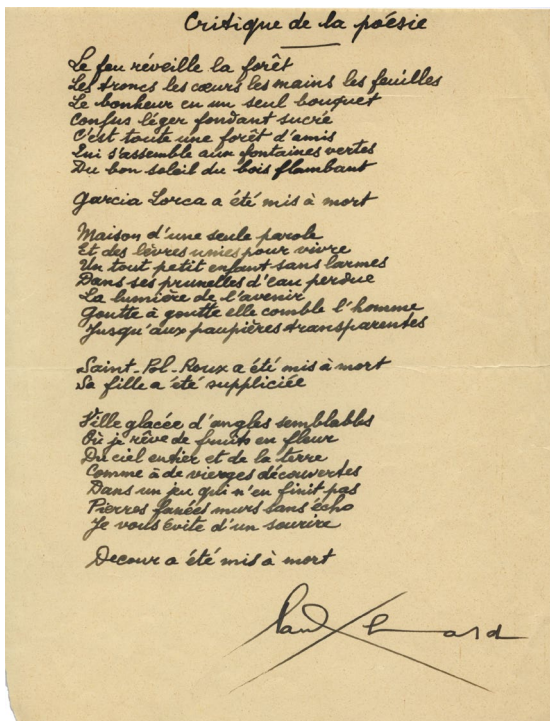 Critique de la poésie
Le feu réveille la forêt
Les troncs les cœurs les mains les feuilles
Le bonheur en un seul bouquet
Confus léger fondant sucré
C'est toute une forêt d'amis
Qui s'assemble aux fontaines vertes
Du bon soleil du bois flambant
Garcia Lorca a été mis à mort
Maison d'une seule parole
Et des lèvres unies pour vivre
Un tout petit enfant sans larmes
Dans ses prunelles d'eau perdue
La lumière de l'avenir
Goutte à goutte elle comble l'homme
Jusqu'aux paupières transparentes
Saint-Pol-Roux a été mis à mort
Sa fille a été suppliciée
Ville glacée d'angles semblables
Où je rêve de fruits en fleur
Du ciel entier et de la terre
Comme à de vierges découvertes
Dans un jeu qui n'en finit pas
Pierres fanées murs sans écho
Je vous évite d'un sourire
Decour a été mis à mort
Paul Eluard